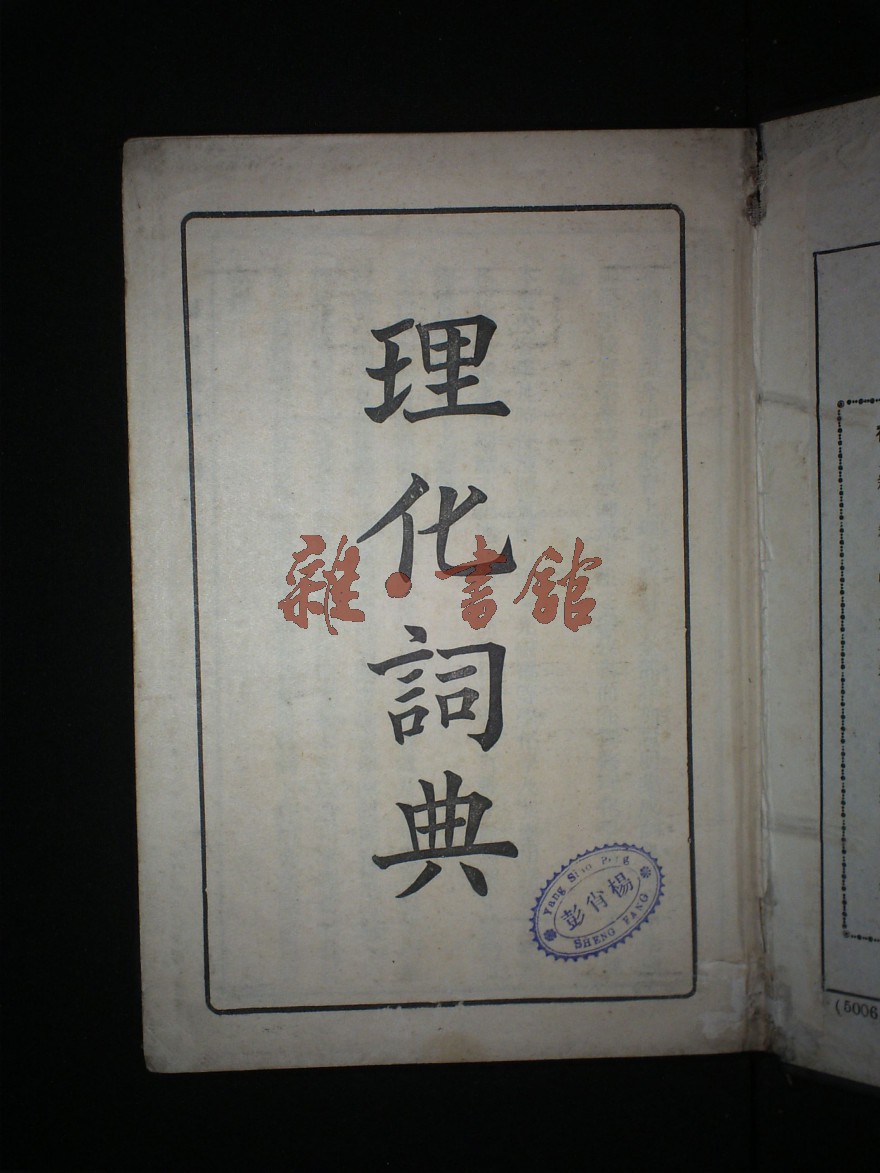 理化詞典
雜·書舘
Yang Siao P
彭肖楊
SHENG FANG
(5006